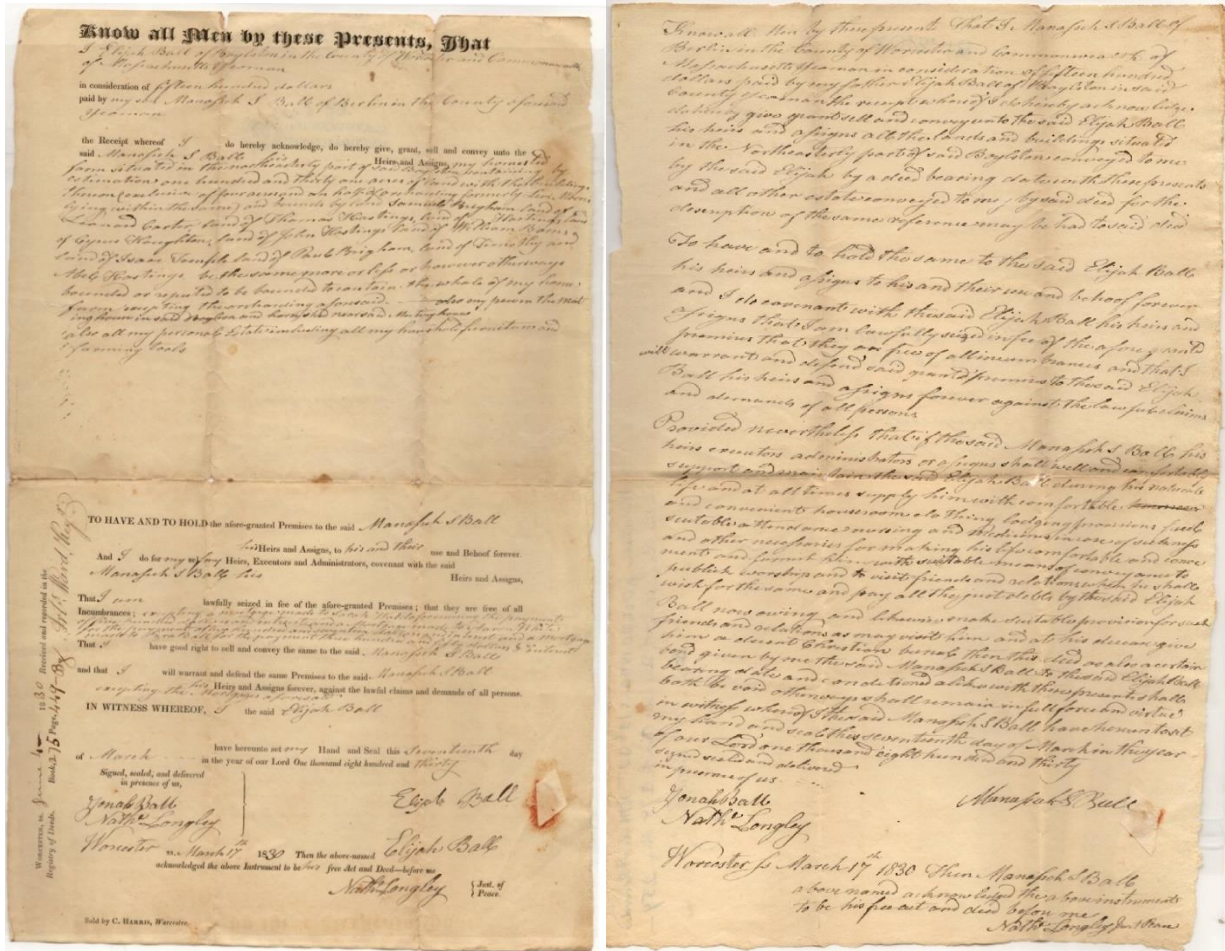 Know all Men by these Presents, That
I Elijah Ball of Boylston in the County of Worcester and Commonwealth
of Massachusetts Yeoman
in consideration of fifteen hundred dollars
paid by my son Manassah S Ball of Berlin in the County aforesaid
Yeoman
the Receipt whereof I do hereby acknowledge, do hereby give, grant, sell and convey unto the
said Manassah S Ball his Heirs and Assigns, my homested
farm situated in the northeasterly part of said Boylston containing by
estimation one hundred and thirty one acres of land with the buildings
thereon
lying within the same) and bounds by land Samuel Brigham, land of
Leonard Carter, land of Thomas Hastings, land of Hastings, land
of Cyrus Houghton, land of John Hastings land of William Barnes
land of Isaac Temple land of Paul Brigham, land of Timothy and
Abel Hastings be the same more or less or however otherways
bounded or reputed to be bounded to contain the whole of my home
farm excepting the orcharding aforesaid also my pew in the meet
inghouse in said Boylston
also all my personal Estate including all my household furniture and
farming tools
TO HAVE AND TO HOLD the afore-granted Premises to the said Manassah S Ball
his Heirs and Assigns, to his and their use and Behoof forever.
And I do for my self my Heirs, Executors and Administrators, covenant with the said
Manassah S Ball his Heirs and Assigns,
That I am lawfully seized in fee of the afore-granted Premises; that they are free of all
Incumbrances; excepting a mortgage made to
That I have good right to sell and convey the same to the said Manassah S Ball
and that I will warrant and defend the same Premises to the said Manassah S Ball
his Heirs and Assigns forever, against the lawful claims and demands of all persons.
excepting the Mortgages aforesaid
IN WITNESS WHEREOF, I the said Elijah Ball
have hereunto set my Hand and Seal this Seventeenth day
of March in the year of our Lord One thousand eight hundred and thirty
Signed, sealed, and delivered
in presence of us,
Jonah Ball
Nathl Longley
Elijah Ball
Worcester ss. March 17th 1830 Then the above-named Elijah Ball
acknowledged the above Instrument to be his free Act and Deed—before me
Nathl Longley Just. of Peace.
Sold by C. HARRIS, Worcester.
WORCESTER, ss. June 1830 Received and recorded in the
Registry of Deeds. Book 275 Page 449 Ward, Regr
Know all Men by these presents That I Manassah S Ball of
Berlin in the County of Worcester and Commonwealth of
Massachusetts Yeoman in consideration of fifteen hundred
dollars paid by my father Elijah Ball of Boylston in said
County Yeoman the receipt whereof I do hereby acknowledge
do hereby give grant sell and convey unto the said Elijah Ball
his heirs and assigns all the lands and buildings situated
in the Northeasterly part of said Boylston conveyed to me
by the said Elijah by a deed bearing date with these presents
and all other estate conveyed to me by said deed for the
description of the same reference may be had to said deed
To have and to hold the same to the said Elijah Ball
his heirs and assigns to his and their use and behoof forever
and I do covenant with the said Elijah Ball his heirs and
assigns that I am lawfully seized in fee of the afore granted
premises that they are free of all incumbrances and that I
will warrant and defend said granted premises to the said Elijah
Ball his heirs and assigns forever against the lawful claims
and demands of all persons
Provided nevertheless that if the said Manassah S Ball his
heirs executors administrators or assigns shall well and comfortably
support and maintain the said Elijah Ball during his natural
life and at all times supply him with comfortable
and convenient houseroom clothing lodging provisions fuel
suitable attendance nursing and medicine in case of sickness
and other necessaries for making his life comfortable and conve
nient and furnish him with suitable means of conveyance to
publick worship and to visit friends and relations when he shall
wish for the same and pay all the just debts by the said Elijah
Ball now owing and likewise make suitable provision for such
friends and relations as may visit him and at his decease give
him a decent Christian burial then this deed as also a certain
bond given by me the said Manassah S Ball to the said Elijah Ball
bearing date and conditioned alike with these presents shall
both be void otherways shall remain in full force and virtue
in witness whereof I the said Manassah S Ball have hereunto set
my hand and seal this seventeenth day of March in the year
of our Lord one thousand eight hundred and thirty
signed sealed and delivered
in presence of us
Jonah Ball
Nathl Longley
Manassah S Ball
Worcester ss March 17th 1830 Then Manassah S Ball
above named acknowledged the above instrument
to be his free act and deed before me
Nathl Longley Just Peace